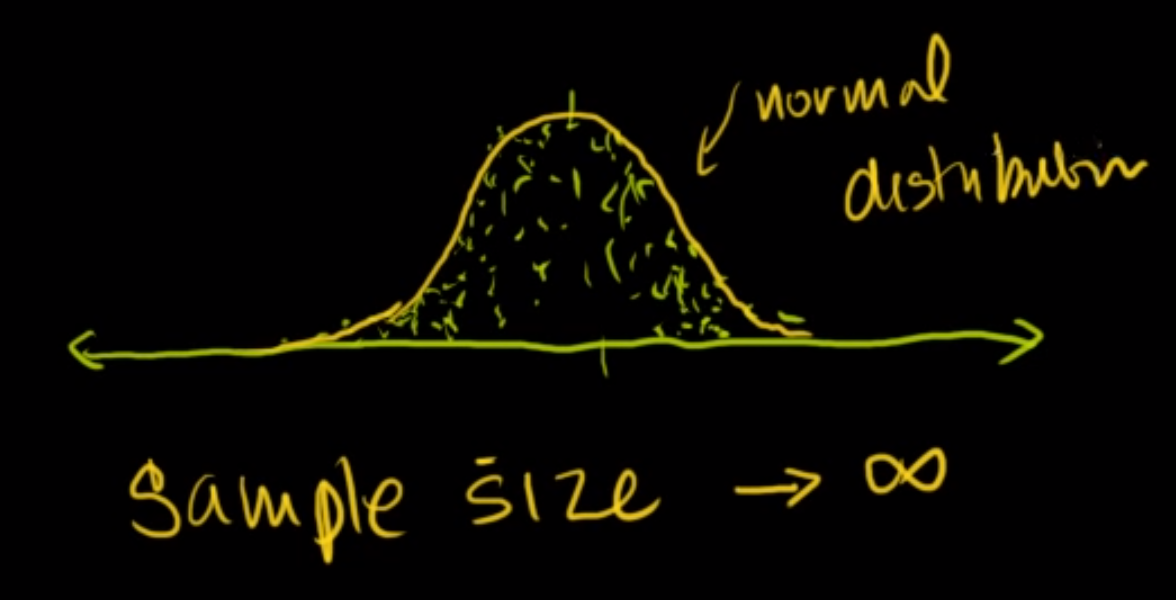 normal
distribution
Sample size → ∞